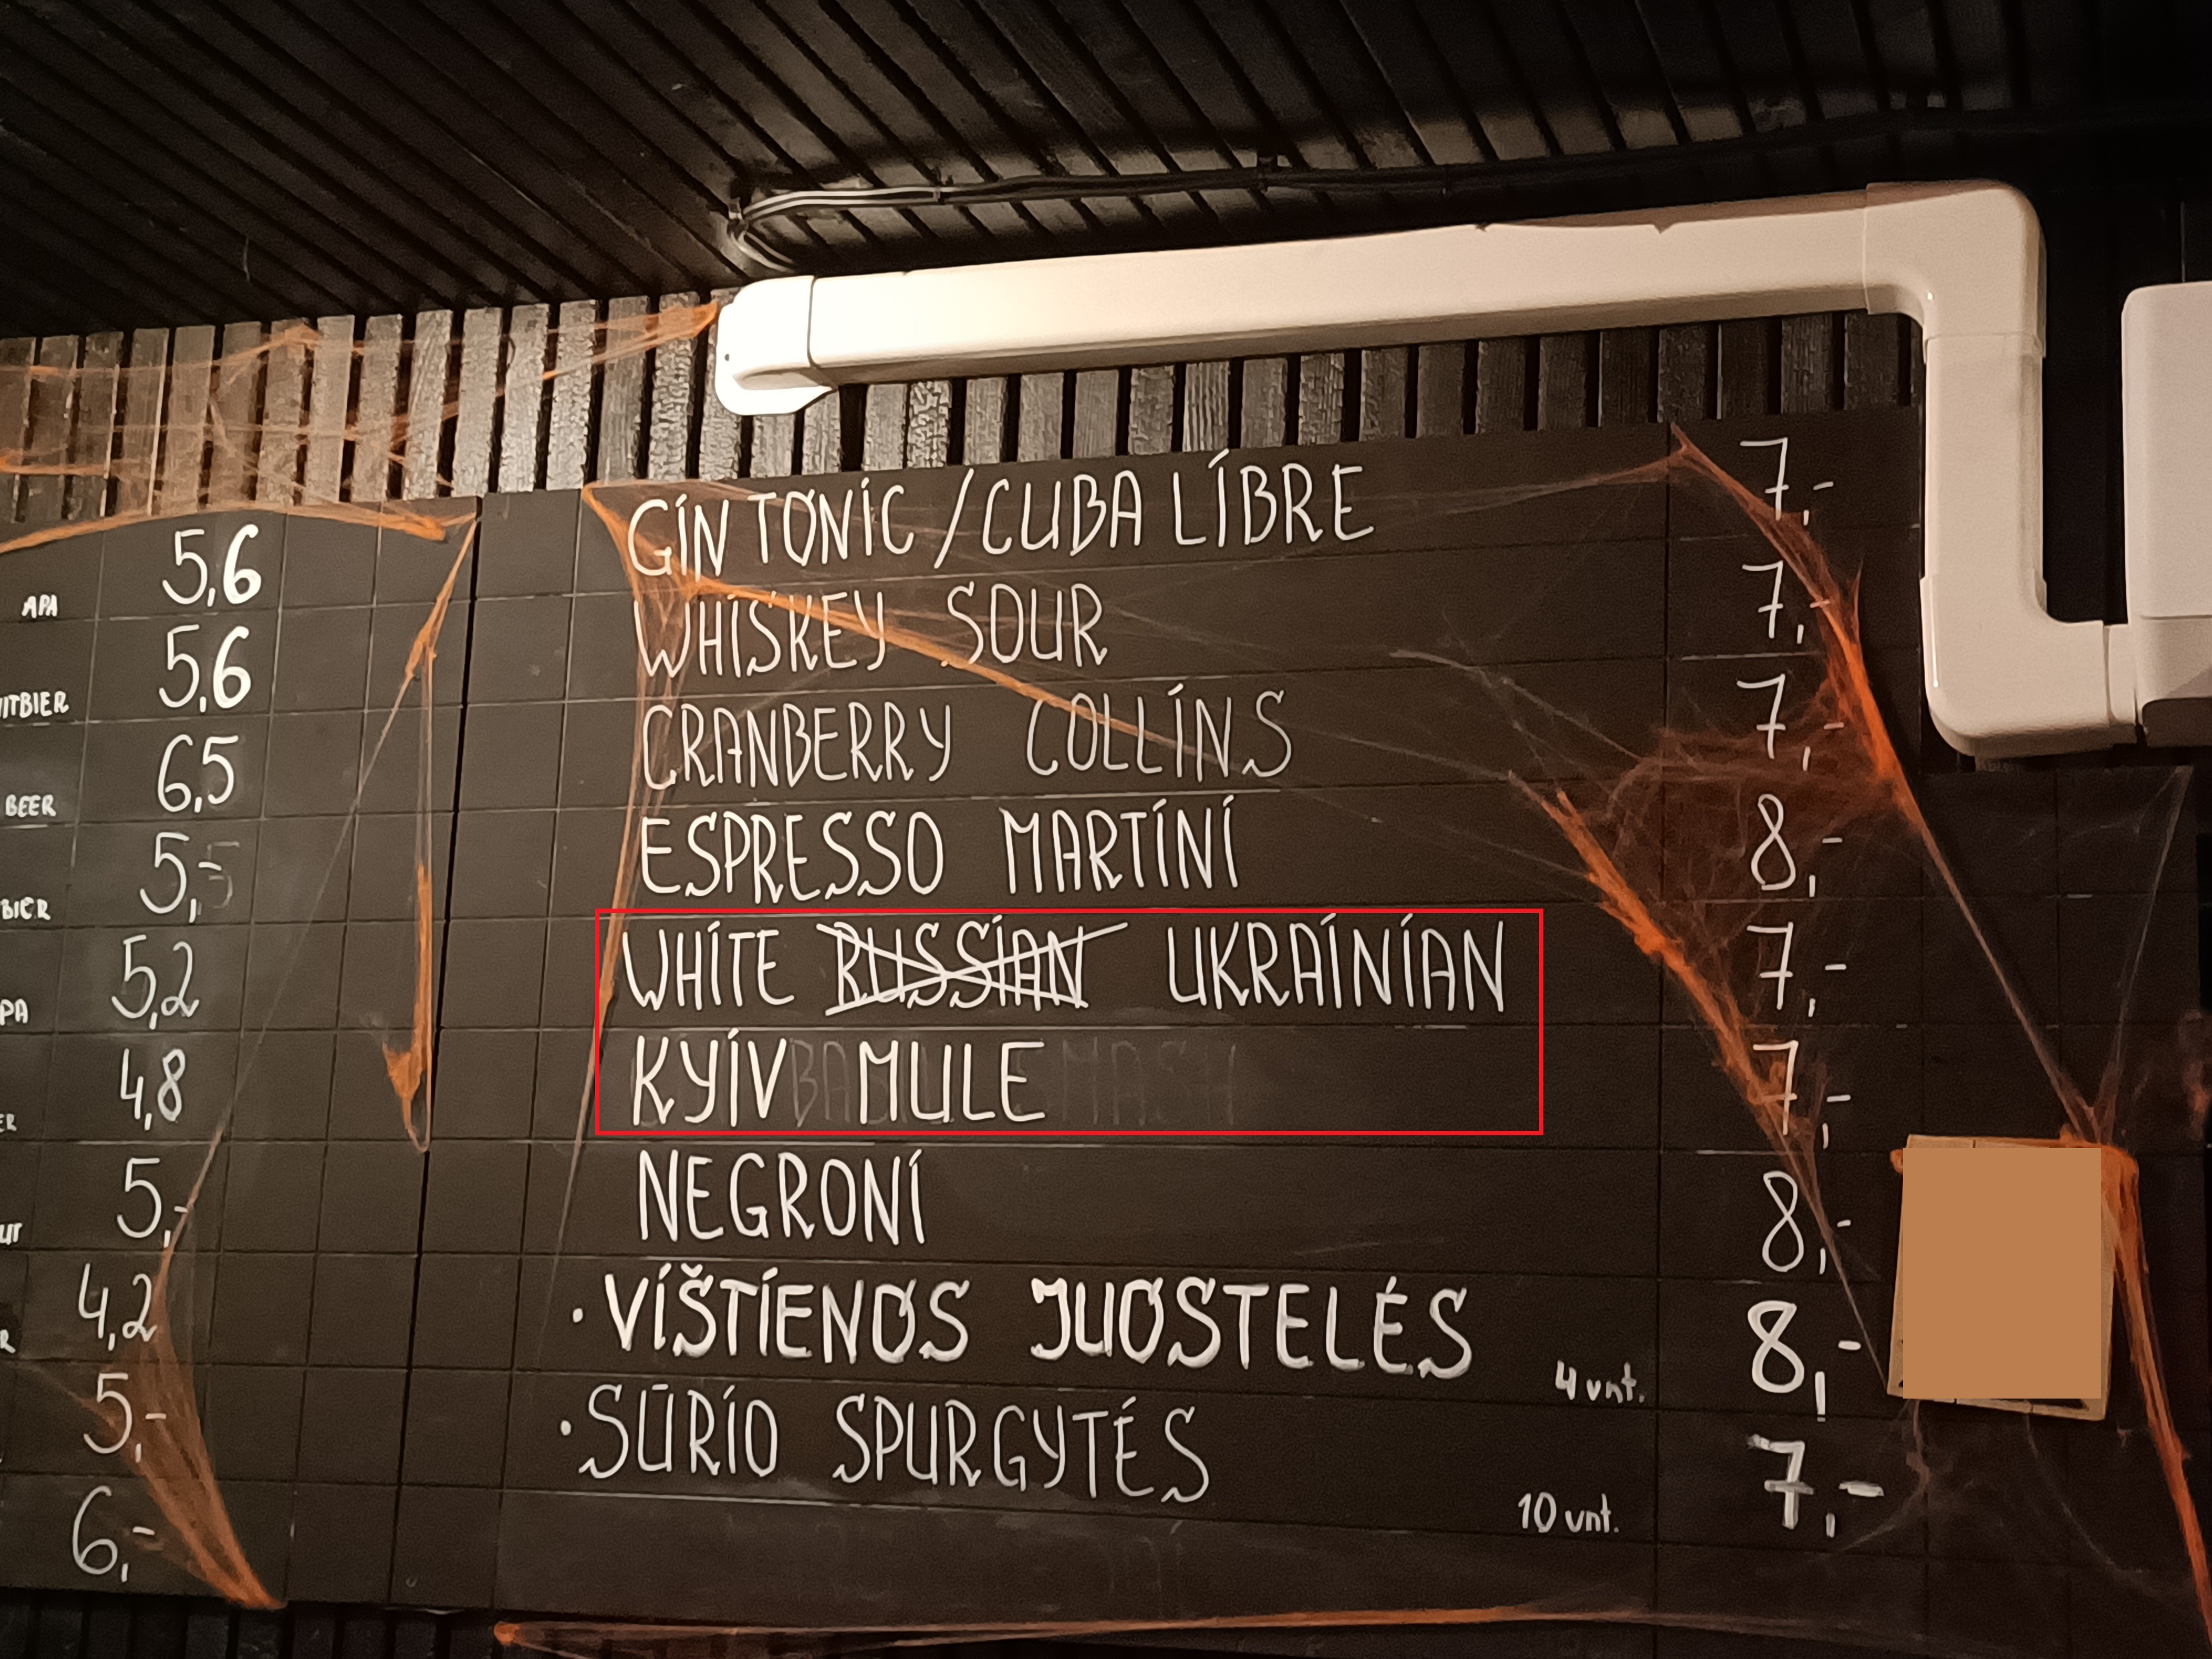 APA 5,6
5,6
BEER 6,5
5,-
5,2
4,8
5,-
4,2
5,-
6,-
GIN TONIC / CUBA LIBRE 7,-
WHISKEY SOUR 7,-
CRANBERRY COLLINS 7,-
ESPRESSO MARTINI 8,-
WHITE RUSSIAN UKRAINIAN 7,-
KYIV MULE 7,-
NEGRONI 8,-
· VIŠTIENOS JUOSTELĖS 4 vnt. 8,-
· SŪRIO SPURGYTĖS 10 vnt. 7,-